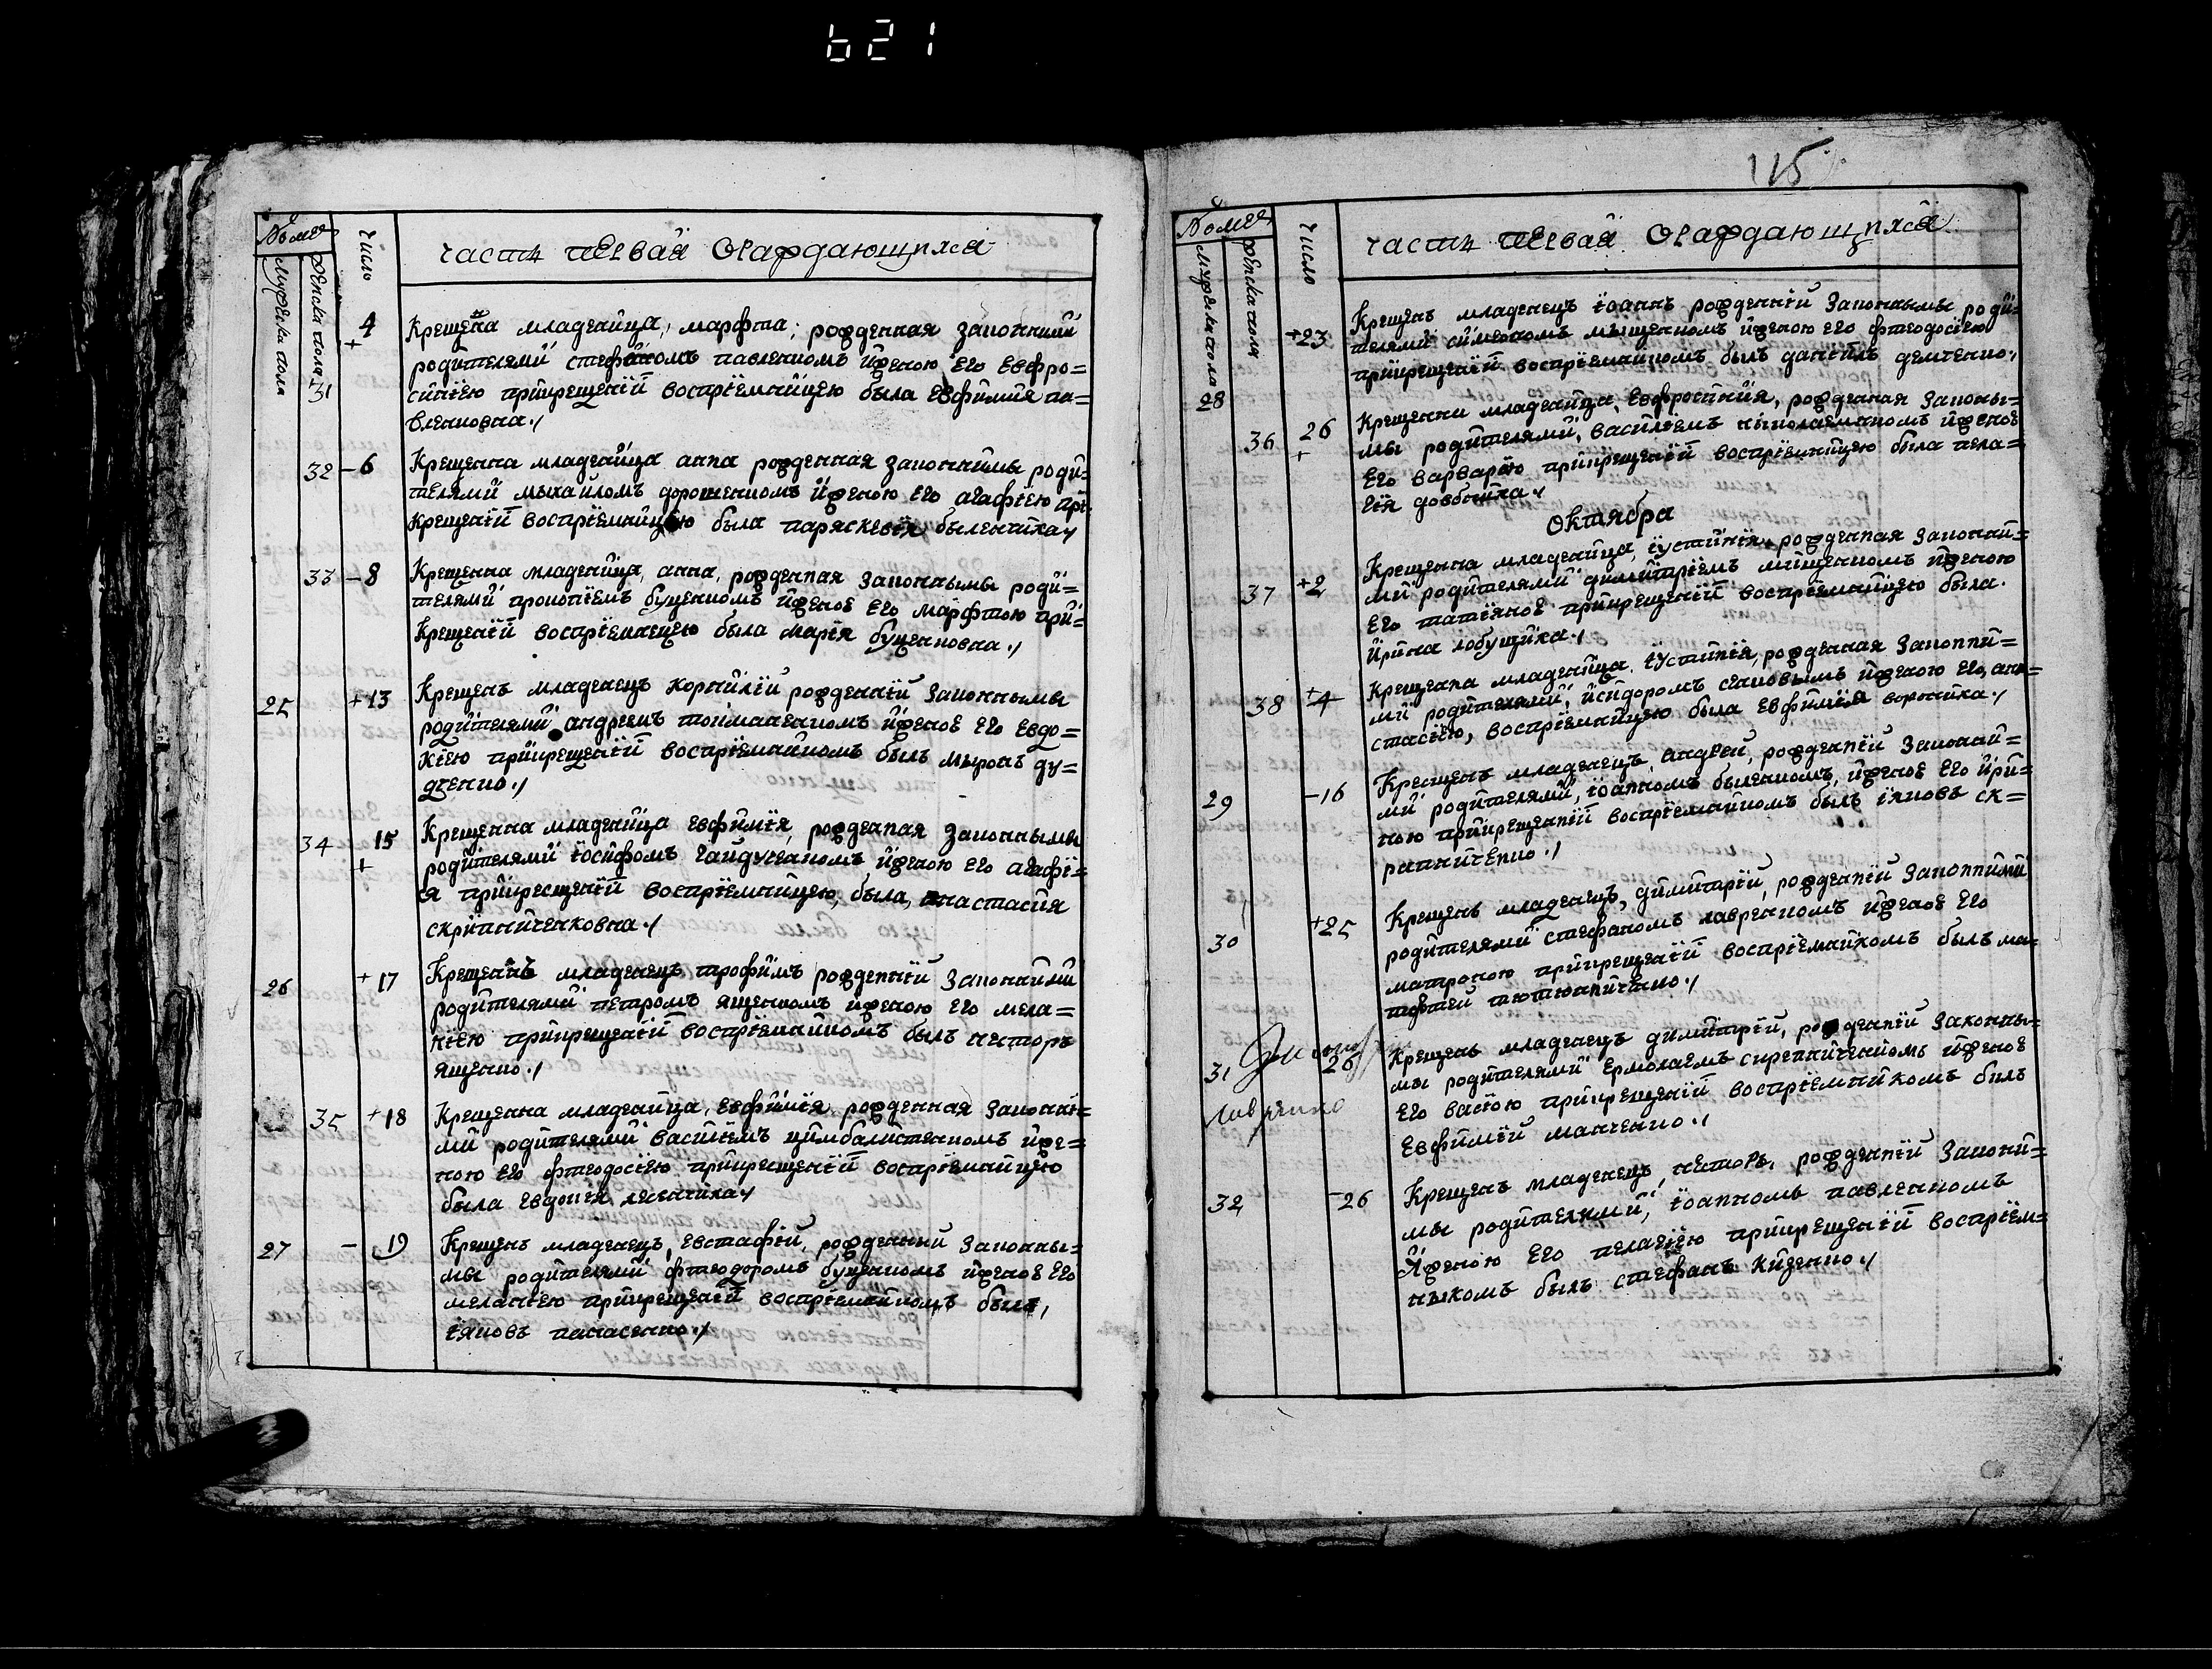 621
Номеръ
Мужеска пола
Женска пола
Число
Часть первая О раждающихся
4
+
31
Крещена младеница, марфта, рожденная законними
родителями стефаномъ павленкомъ иженою Его Евфро=
синіею прикрещеніи воспріемницею была Евфимия па=
вленковна./
32 – 6
Крещенна младеница анна рожденная законнимы роди=
телями михайломъ дорошенкомъ иженою Его агафіею при
крещеніи воспріемницею была параскевія быленчиха./
33 – 8
Крещенна младеница, анна, рожденная законнымы роди=
телями прокопіемъ буценкомъ иженоѣ Его Марфтою при=
Крещеніи воспріемнецею была Марія буценковна./
25 +13
Крещенъ младенецъ корнилій рожденній законнымы
родителями андреемъ тоиманенкомъ иженоѣ Его Евдо=
Кіею прикрещеніи воспріемникомъ былъ мыронъ ду=
дченко./
34 15
+
Крещенна младеница Евфимія, рожденая законнымы
родителями іосифомъ гайдученкомъ иженою Его агафі=
я прикресщеніи воспріемницею, была, анастасия
скрипниченковна./
26 +17
Крещенъ младенецъ трофимъ рожденній законними
родителями петромъ яценкомъ иженою Его мела=
ніею прикрещеніи воспріемникомъ былъ несторъ
яценко./
35 +18
Крещенна младеница, Евфимія рожденная законны=
ми родителями василіемъ цимбалистенкомъ иже=
ною Его фтеодосіею прикрещеніи воспріемницею
была Евдокія лисенчиха./
27 – 19
Крещенъ младенецъ, Евстафій, рожденній законны=
мы родителями фтеодоромъ буценкомъ иженоѣ Его
меланіею прикрещеніи воспріемникомъ былъ,
іяковъ панасенко./
115
Номеръ
Мужеска пола
Женска пола
Число
Часть первая О раждающихся
+23
28
Крещенъ младенецъ іоаннъ рожденній законнымы роди=
телями симеономъ мищенкомъ иженою его фтеодосіею
прикрещеніи воспріемникомъ былъ даніилъ демченко,
36 26
+
Крещенни младеница, Евфросиния, рожденая законы=
мы родителями, василіемъ ныколаенкомъ иженоѣ
Его варварою прикрещеніи воспріемницею была пела=
гія довбиша./
Октября
37 +2
Крещенна младеница, іустинія, рожденная законни=
ми родителями димитріемъ мищенкомъ иженою
Его татіяноѣ прикрещеніи воспріемницею была.
Ирина
38 +4
Крещенна младеница іустинія, рожденная законни=
ми родителями, исидоромъ иженою Его, ана=
стасіею, воспріемницею была Евфимія воронина./
29 –16
Крещенъ младенецъ, андрей, рожденній законни=
ми родителями, іоанномъ быленкомъ, иженоѣ Его ири=
ною прикрещеніи воспріемникомъ былъ іяковъ ск=
рипниченко./
30 +25
Крещенъ младенецъ, димитрій, рожденній законними
родителями стефаномъ лавренкомъ иженоѣ Его
матроною прикрещеніи воспріемникомъ былъ ма=
тфтей тютюнниченко./
31 26
лавренко
Крещенъ младенецъ димитрій, рожденній законны=
мы родителями Ермолаемъ скрепниченкомъ иженоѣ
Его васіою прикрещеніи воспріемникомъ былъ
Евфимій манченко./
32 –26
Крещенъ младенецъ, несторъ, рожденній законни=
мы родителями, іоанномъ павленкомъ
Иженою Его пелагіею прикрещеніи воспріем=
ныкомъ былъ стефанъ Кизенко./